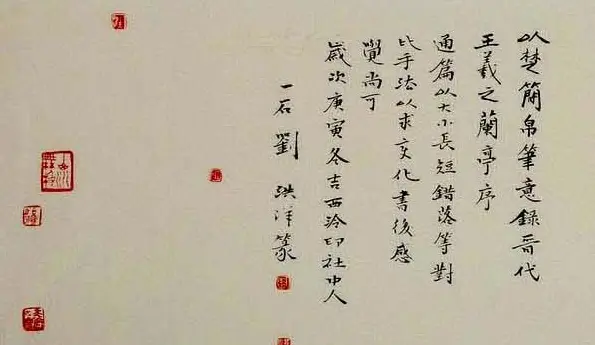 以楚簡帛筆意錄晉代
王羲之蘭亭序
通篇以大小長短錯落等對
比手法以求變化書後感
覺尚可
歲次庚寅冬吉西泠印社中人
一石劉洪洋篆